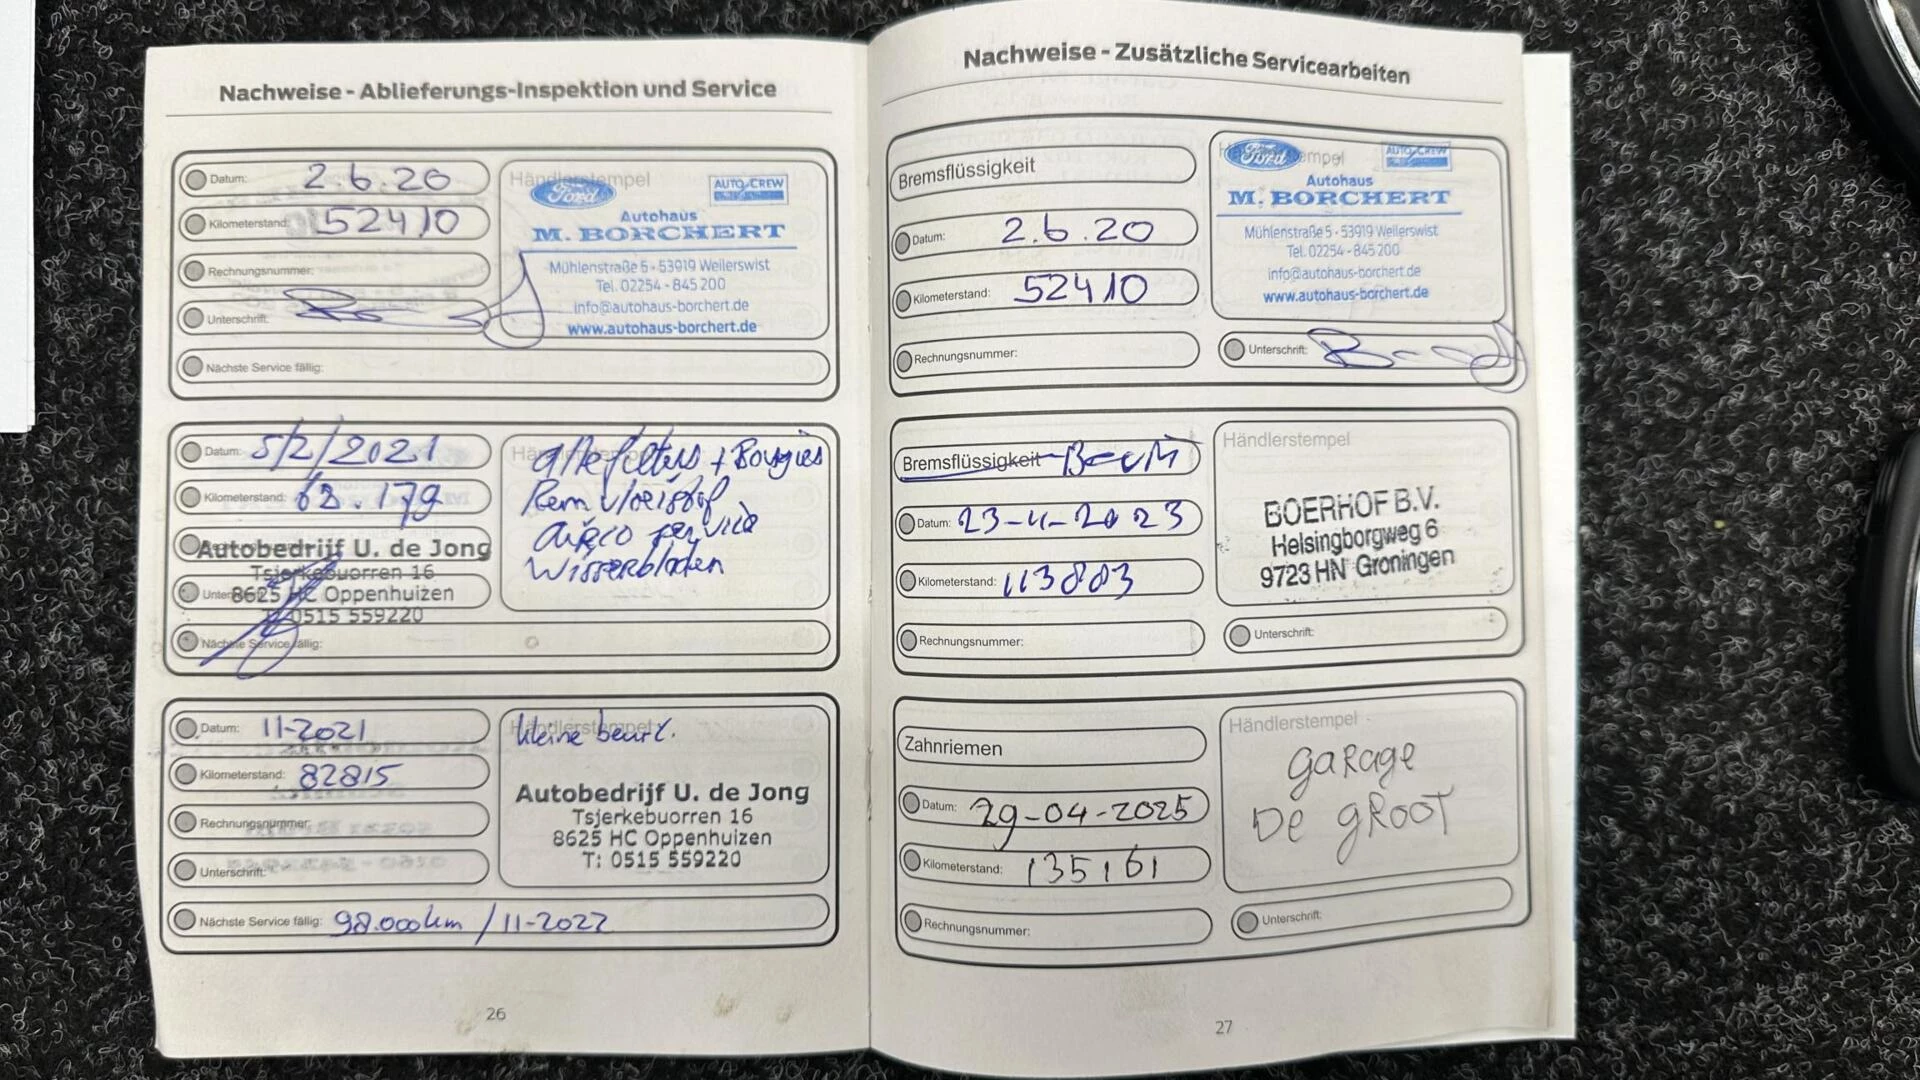 Nachweise - Ablieferungs-Inspektion und Service
Datum: 2.6.20
Kilometerstand: 52410
Rechnungsnummer:
Unterschrift:
Händlerstempel
Ford AUTO CREW
Autohaus
M. BORCHERT
Mühlenstraße 5 - 53919 Weilerswist
Tel. 02254 - 845 200
info@autohaus-borchert.de
www.autohaus-borchert.de
Nächste Service fällig:
Datum: 5/2/2021
Kilometerstand: 63.179
Autobedrijf U. de Jong
Tsjerkebuorren 16
8625 HC Oppenhuizen
T: 0515 559220
Nächste Service fällig:
Alle filters + Bougies
Rem vloeistof
Airco service
Wisserbladen
Datum: 11-2021
Kilometerstand: 82815
Rechnungsnummer:
Unterschrift:
Händlerstempel
kleine beurt.
Autobedrijf U. de Jong
Tsjerkebuorren 16
8625 HC Oppenhuizen
T: 0515 559220
Nächste Service fällig: 98.000km / 11-2022
26
Nachweise - Zusätzliche Servicearbeiten
Bremsflüssigkeit
Datum: 2.6.20
Kilometerstand: 52410
Rechnungsnummer:
Ford AUTO CREW
Autohaus
M. BORCHERT
Mühlenstraße 5 - 53919 Weilerswist
Tel. 02254 - 845 200
info@autohaus-borchert.de
www.autohaus-borchert.de
Unterschrift:
Bremsflüssigkeit
Datum: 23-4-2023
Kilometerstand: 113883
Rechnungsnummer:
Händlerstempel
BOERHOF B.V.
Helsingborgweg 6
9723 HN Groningen
Unterschrift:
Zahnriemen
Datum: 29-04-2025
Kilometerstand: 135161
Rechnungsnummer:
Händlerstempel
Garage
De Groot
Unterschrift:
27